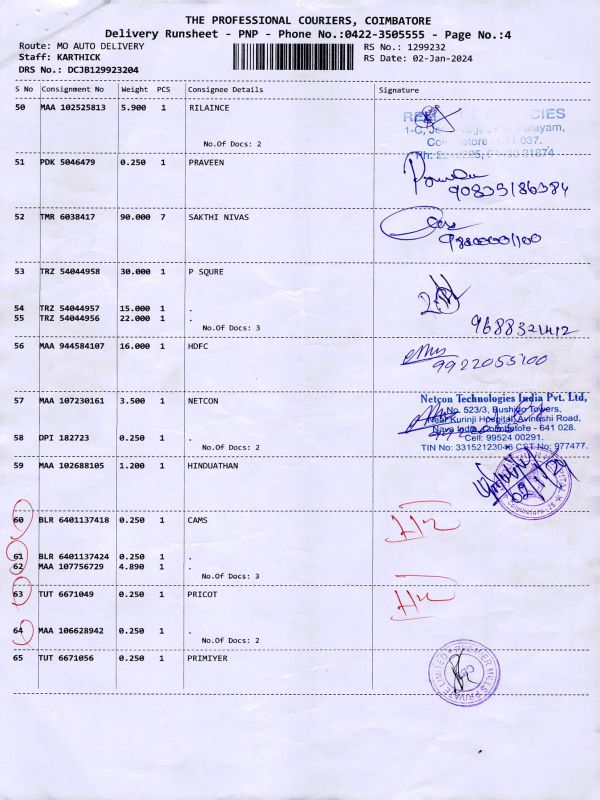 THE PROFESSIONAL COURIERS, COIMBATORE
Delivery Runsheet - PNP - Phone No.:0422-3505555 - Page No.:4
Route: MO AUTO DELIVERY RS No.: 1299232
Staff: KARTHICK RS Date: 02-Jan-2024
DRS No.: DCJB129923204
S No Consignment No Weight PCS Consignee Details Signature
50 MAA 102525813 5.900 1 RILAINCE
No.Of Docs: 2
51 PDK 5046479 0.250 1 PRAVEEN
52 TMR 6038417 90.000 7 SAKTHI NIVAS
53 TRZ 54044958 30.000 1 P SQURE
54 TRZ 54044957 15.000 1 .
55 TRZ 54044956 22.000 1 .
No.Of Docs: 3
9688321412
56 MAA 944584107 16.000 1 HDFC
9922055100
57 MAA 107230161 3.500 1 NETCON
Netcon Technologies India Pvt. Ltd,
No. 523/3, Bushido Towers,
Near Kurinji Hospital, Avinashi Road,
Nava India, Coimbatore - 641 028.
Cell: 99524 00291.
TIN No: 33152123048 CST No: 977477.
58 DPI 182723 0.250 1 .
No.Of Docs: 2
59 MAA 102688105 1.200 1 HINDUATHAN
60 BLR 6401137418 0.250 1 CAMS
61 BLR 6401137424 0.250 1 .
62 MAA 107756729 4.890 1 .
No.Of Docs: 3
63 TUT 6671049 0.250 1 PRICOT
64 MAA 106628942 0.250 1 .
No.Of Docs: 2
65 TUT 6671056 0.250 1 PRIMIYER
PREMIER MILLS PRIVATE LIMITED